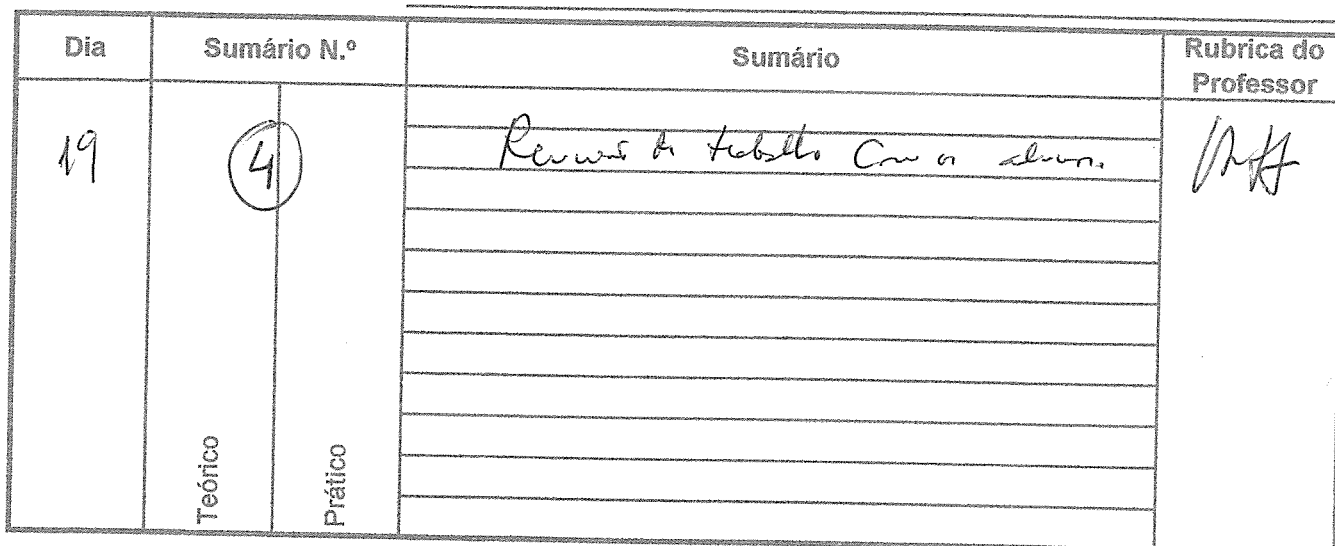 Dia Sumário N.º Sumário Rubrica do Professor
19 4 de trabalho com os alunos.
Teórico Prático